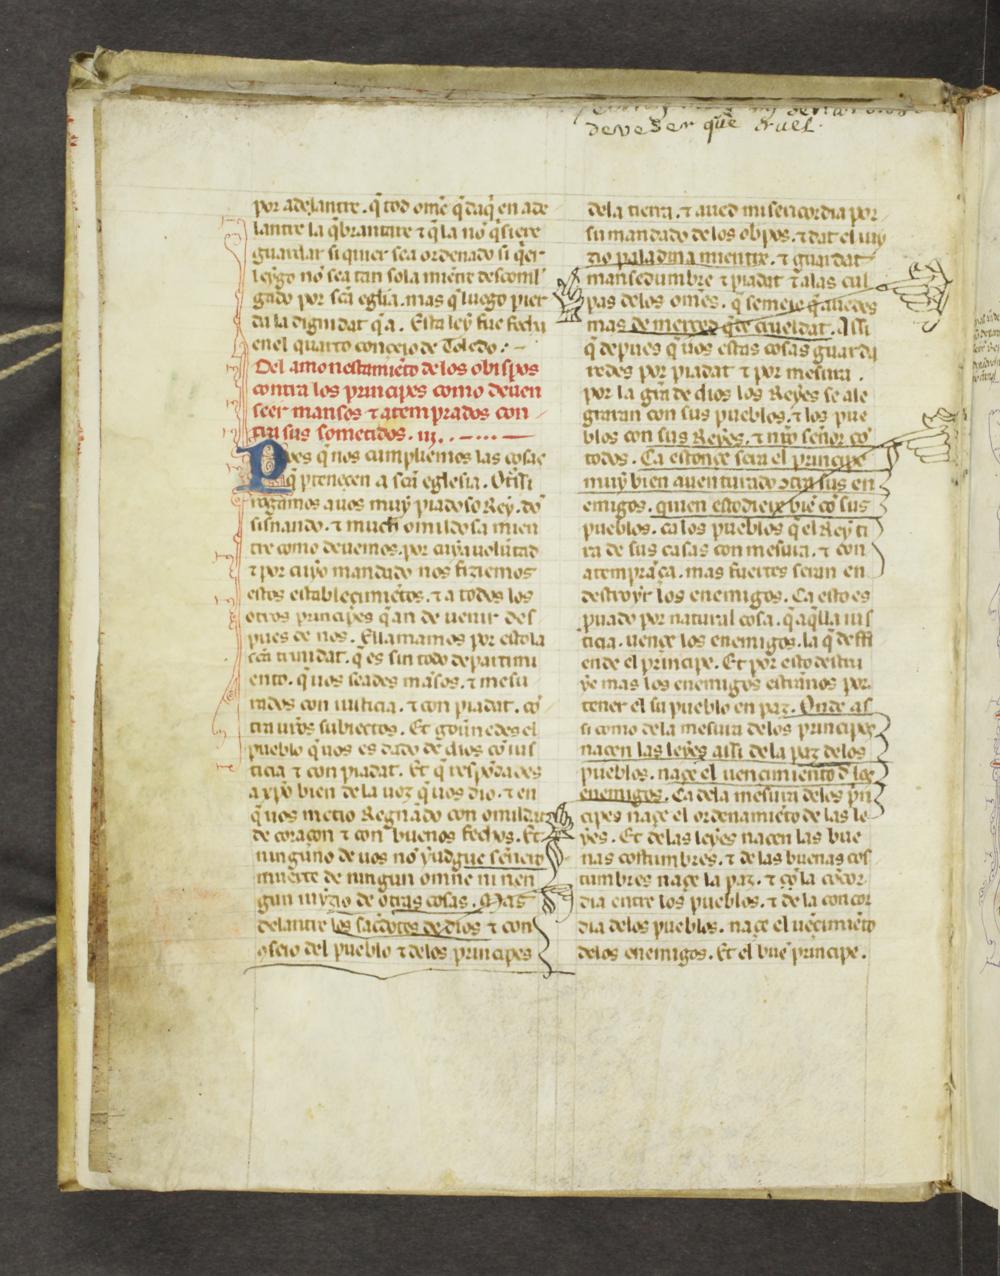 deve ser que cruel.
por adelantre. q̃ tod ome q̃ daq̃ en ade
lantre la q̃brantare ⁊ q̃ la no q̃siere
guardar si quier sea ordenado si q̃er
leygo no sea tan sola mient descoml
gado por sc̃a eglia. mas q̃ luego pier
da la dignidat q̃ a. Esta ley fue fecha
en el quarto conceio de Toledo:-
Del amonestamiẽto de los obispos
contra los principes como deuen
seer mansos ⁊ atemprados con
tra sus sometidos. iij.
Pves q̃ nos cumpliemos las cosas
q̃ ptenecen a sc̃a eglesia. Otssi
rogamos a uos muy piadoso Rey. dõ
sisnando. ⁊ much omildosa mien
tre como deuemos. por cuya uolũtad
⁊ por cuyo mandado nos fiziemos
estos establecimiẽtos. ⁊ a todos los
otros principes q̃ an de uenir des
pues de nos. E llamamos por esto la
sc̃a trinidat. q̃ es sin todo departimi
ento. q̃ uos seades mãsos. ⁊ mesu
rados con iusticia. ⁊ con piadat. cõ
tra uros subiectos. Et gou̾nedes el
pueblo q̃ uos es dado de dios cõ ius
ticia ⁊ con piadat. Et q̃ respõdades
a xpo bien de la uoz q̃ uos dio. ⁊ en
q̃ uos metio Regnãdo con omildat
de coraçon ⁊ con buenos fechos. Et
ninguno de uos no yudgue sẽncia
muerte de ningun omne ni nen
gun iuyzio de otras cosas. Mas
delantre los sac̾dotes de dios ⁊ con
ↄseio del pueblo ⁊ de los principes
de la tierra. ⁊ aued misericordia por
su mandado de los obpos. ⁊ dat el iuy
zio paladina mientre. ⁊ guardat
mansedumbre ⁊ piadat ⁊ a las cul
pas de los omes. q̃ semeie q̃ auedes
mas de merced q̃ de crueldat. Assi
q̃ depues q̃ uos estas cosas guarda
redes por piadat ⁊ por mesura.
por la gr̃a de dios los Reyes se ale
graran con sus pueblos. ⁊ los pue
blos con sus Reyes. ⁊ nr̃o señor cõ
todos. Ca estonçe sera el principe
muy bien auenturado ↄtra sus en
emigos. quien estodiere biẽ cõ sus
pueblos. ca los pueblos q̃ el Rey ti
ra de sus casas con mesura. ⁊ con
atemprãça. mas fuertes seran en
destroyr los enemigos. Ca esto es
puado por natural cosa. q̃ aq̃lla ius
ticia. uençe los enemigos. la q̃ deffi
ende el principe. Et por esto destru
ye mas los enemigos estraños por
tener el su pueblo en paz. Onde as
si como de la mesura de los principes
nacen las leyes assi de la paz de los
pueblos. naçe el uencimiento d̾ los
enemigos. Ca de la mesura de los prĩ
cipes naçe el ordenamiẽto de las le
yes. Et de las leyes nacen las bue
nas costumbres. ⁊ de las buenas cos
tumbres naçe la paz. ⁊ cõ la cõcor
dia entre los pueblos. ⁊ de la concor
dia de los pueblos. naçe el uẽcimiẽto
de los enemigos. Et el buẽ principe.